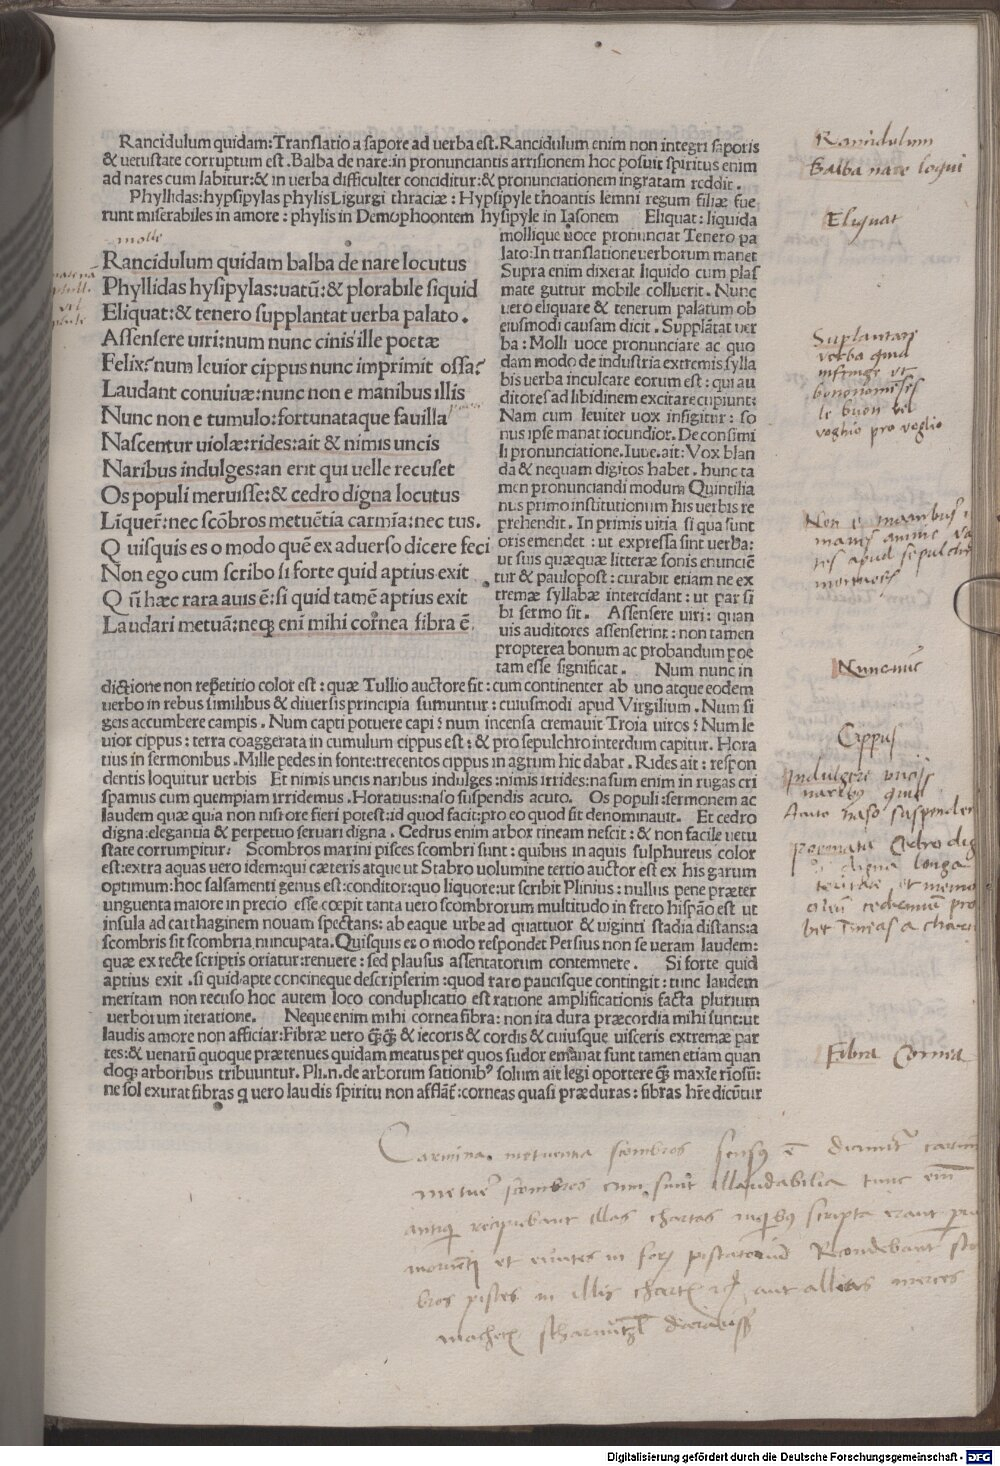 Rancidulum quidam:Translatio a sapore ad uerba est.Rancidulum enim non integri saporis
& uetustate corruptum est.Balba de nare:in pronunciantis arrisionem hoc posuit spiritus enim
ad nares cum labitur:& in uerba difficulter conciditur:& pronunciationem ingratam reddit.
Phyllidas:hypsipylas phylis Ligurgi thraciæ:Hypsipyle thoantis lemni regum filiæ fue
runt miserabiles in amore:phylis in Demophoontem hysipyle in Iasonem Eliquat:liquida
molle
Rancidulum quidam balba de nare locutus
Phyllidas hysipylas:uatū:& plorabile siquid
Eliquat:& tenero supplantat uerba palato.
Assensere uiri:num nunc cinis ille poetæ
Felix?num leuior cippus nunc imprimit ossa?
Laudant conuiuæ:nunc non e manibus illis
Nunc non e tumulo:fortunataque fauilla
Nascentur uiolæ:rides:ait & nimis uncis
Naribus indulges:an erit qui uelle recuset
Os populi meruisse:& cedro digna locutus
Liquer̄:nec scōbros metuētia carmīa:nec tus.
Quisquis es o modo quē ex aduerso dicere feci
Non ego cum scribo si forte quid aptius exit
Qn̄ hæc rara auis ē:si quid tamē aptius exit
Laudari metuā:neqꝫ eni mihi cornea fibra ē.
mollique uoce pronunciat Tenero pa
lato:In translatione uerborum manet
Supra enim dixerat liquido cum plas
mate guttur mobile colluerit. Nunc
uero eliquare & tenerum palatum ob
eiusmodi causam dicit. Supplātat uer
ba:Molli uoce pronunciare ac quo
dam modo de industria extremis sylla
bis uerba inculcare eorum est:qui au
ditores ad libidinem excitare cupiunt:
Nam cum leuiter uox infigitur:so
nus ipse manat iocundior. De consimi
li pronunciatione.Iuue.ait:Vox blan
da & nequam digitos habet. hunc ta
men pronunciandi modum Quintilia
nus primo institutionum his uerbis re
prehendit. In primis uitia si qua sunt
oris emendet:ut expressa sint uerba:
ut suis quæquæ litteræ sonis enuncien
tur & paulopost:curabit etiam ne ex
tremæ syllabæ intercidant:ut par si
bi sermo sit. Assensere uiri:quan
uis auditores assenserint:non tamen
propterea bonum ac probandum poe
tam esse significat. Num nunc in
dictione non repetitio color est:quæ Tullio auctore fit:cum continenter ab uno atque eodem
uerbo in rebus similibus & diuersis principia sumuntur:cuiusmodi apud Virgilium.Num si
geis accumbere campis.Num capti potuere capi?num incensa cremauit Troia uiros?Num le
uior cippus:terra coaggerata in cumulum cippus est:& pro sepulchro interdum capitur. Hora
tius in sermonibus.Mille pedes in fonte:trecentos cippus in agrum hic dabat.Rides ait:respon
dentis loquitur uerbis Et nimis uncis naribus indulges:nimis irrides:nasum enim in rugas cri
spamus cum quempiam irridemus.Horatius:naso suspendis acuto. Os populi:sermonem ac
laudem quæ quia non nisi ore fieri potest:id quod facit:pro eo quod fit denominauit. Et cedro
digna:elegantia & perpetuo seruari digna. Cedrus enim arbor tineam nescit:& non facile uetu
state corrumpitur: Scombros marini pisces scombri sunt:quibus in aquis sulphureus color
est:extra aquas uero idem:qui cæteris atque ut Stabro uolumine tertio auctor est ex his garum
optimum:hoc salsamenti genus est:conditor:quo liquore:ut scribit Plinius:nullus pene præter
unguenta maiore in precio esse cœpit tanta uero scombrorum multitudo in freto hispāo est ut
insula ad carthaginem nouam spectans:ab eaque urbe ad quattuor & uiginti stadia distans:a
scombris sit scombria nuncupata.Quisquis es o modo respondet Persius non se ueram laudem:
quæ ex recte scriptis oriatur:renuere:sed plausus assentatorum contemnere. Si forte quid
aptius exit.si quid apte concineque descripserim:quod raro paucisque contingit:tunc laudem
meritam non recuso hoc autem loco conduplicatio est ratione amplificationis facta plurium
uerborum iteratione. Neque enim mihi cornea fibra:non ita dura præcordia mihi sunt:ut
laudis amore non afficiar:Fibræ uero q̄q̄ & iecoris & cordis & cuiusque uisceris extremæ par
tes:& uenarū quoque prætenues quidam meatus per quos sudor emanat sunt tamen etiam quan
doqꝫ arboribus tribuuntur. Pli.n.de arborum sationib⁹ solum ait legi oportere qꝫ maxīe rīosū:
ne sol exurat fibras q uero laudis spiritu non afflāt:corneas quasi præduras:fibras hr̄e dicūtur
Rancidulum
Balba nare loqui
Eliquat
Suplantare
verba quid
infringe et
bononiensis
le buon vel
voglio pro voglio
Non e manibus
manes animae
apud sepulchra
mortuos
Nunc nunc
Cippus
Indulgere
naribus quid
naso suspendere
Cedro dig
digna longa
cedrinum pro
bet Tineas a chart
Fibra Cornea
Carmina metuentia scombros sensus ē dicunt carmina
scombros cum sunt illaudabilia tunc enim
antiqui recipiebant illas chartas in quibus scripta erant
et euntes in Recondebant scom
bros pisces in illis aut alias merces